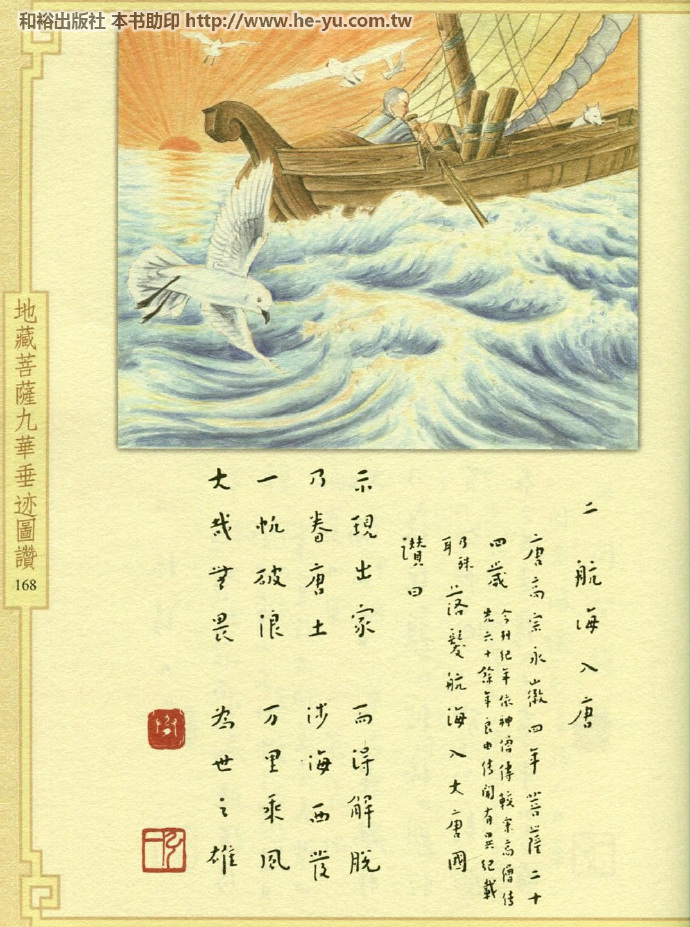 和裕出版社 本書助印 http://www.he-yu.com.tw
地藏菩薩九華垂迹圖讚
168
二 航海入唐
唐高宗永徽四年菩薩二十
四歲
今列紀年依神僧傳較宋高僧傳
先六十餘年良由傳聞有異紀載
乃殊
耶 落髮航海入大唐國
讚曰
示現出家 而得解脫
乃眷唐土 涉海西發
一帆破浪 万里乘風
大哉無畏 為世之雄